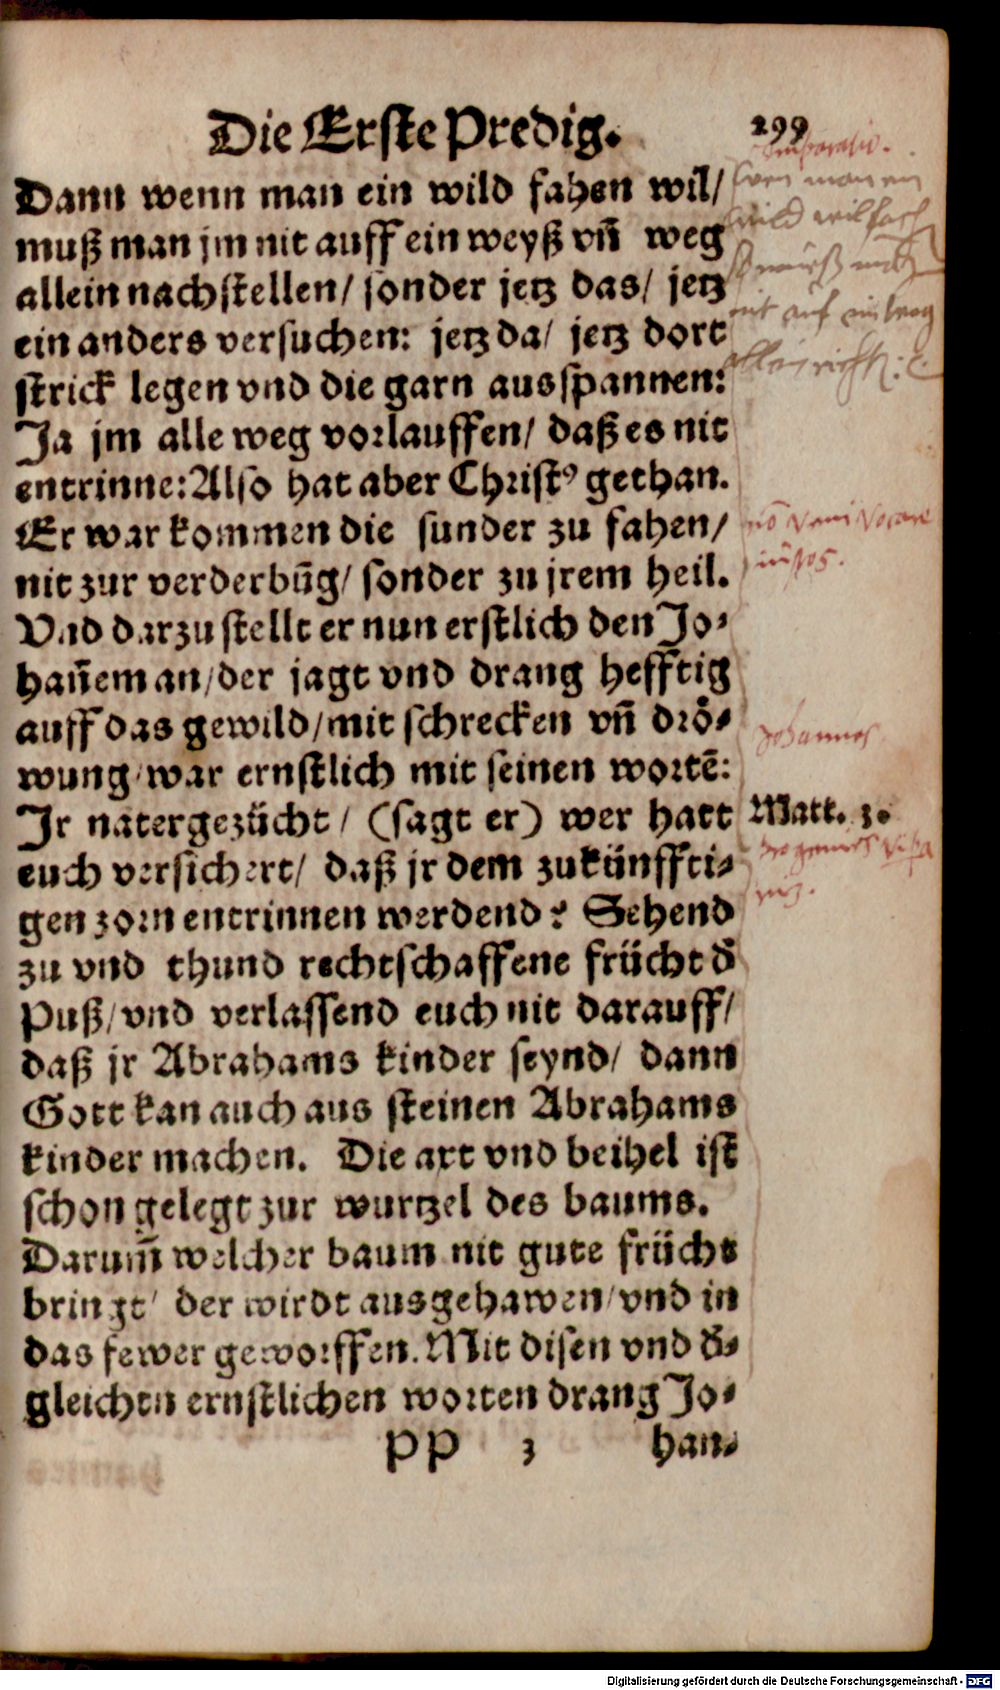 Die Erste Predig. 299
Dann wenn man ein wild fahen wil/
muß man jm nit auff ein weyß vñ weg
allein nachstellen/ sonder jetz das/ jetz
ein anders versuchen: jetz da/ jetz dort
strick legen vnd die garn ausspannen:
Ja jm alle weg vorlauffen/ daß es nit
entrinne: Also hat aber Christꝰ gethan.
Er war kommen die sunder zu fahen/
nit zur verderbũg/ sonder zu jrem heil.
Vnd darzu stellt er nun erstlich den Jo-
hañem an/ der jagt vnd drang hefftig
auff das gewild/ mit schrecken vñ drö-
wung/ war ernstlich mit seinen wortẽ:
Jr natergezücht/ (sagt er) wer hatt
euch versichert/ daß jr dem zukünffti-
gen zorn entrinnen werdend? Sehend
zu vnd thund rechtschaffene frücht d̕
Puß/ vnd verlassend euch nit darauff/
daß jr Abrahams kinder seynd/ dann
Gott kan auch aus steinen Abrahams
kinder machen. Die axt vnd beihel ist
schon gelegt zur wurtzel des baums.
Darum̃ welcher baum nit gute frücht
bringt/ der wirdt ausgehawen/ vnd in
das fewer geworffen. Mit disen vnd d̕-
gleichen ernstlichen worten drang Jo-
PP 3 han-
wen man ein
wild wil
nit auf ein weg
nõ veni vocare
iustos.
Johannes
Matt. 3.
Digitalisierung gefördert durch die Deutsche Forschungsgemeinschaft - DFG